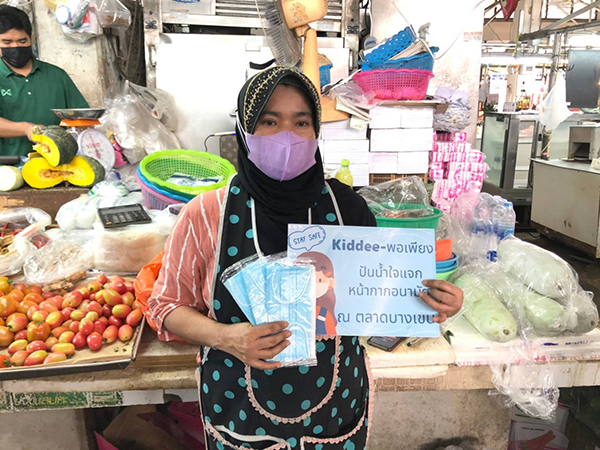 STAY SAFE
Kiddee-พอเพียง
ปันน้ำใจแจก
หน้ากากอนามัย
ณ ตลาดบางเขน